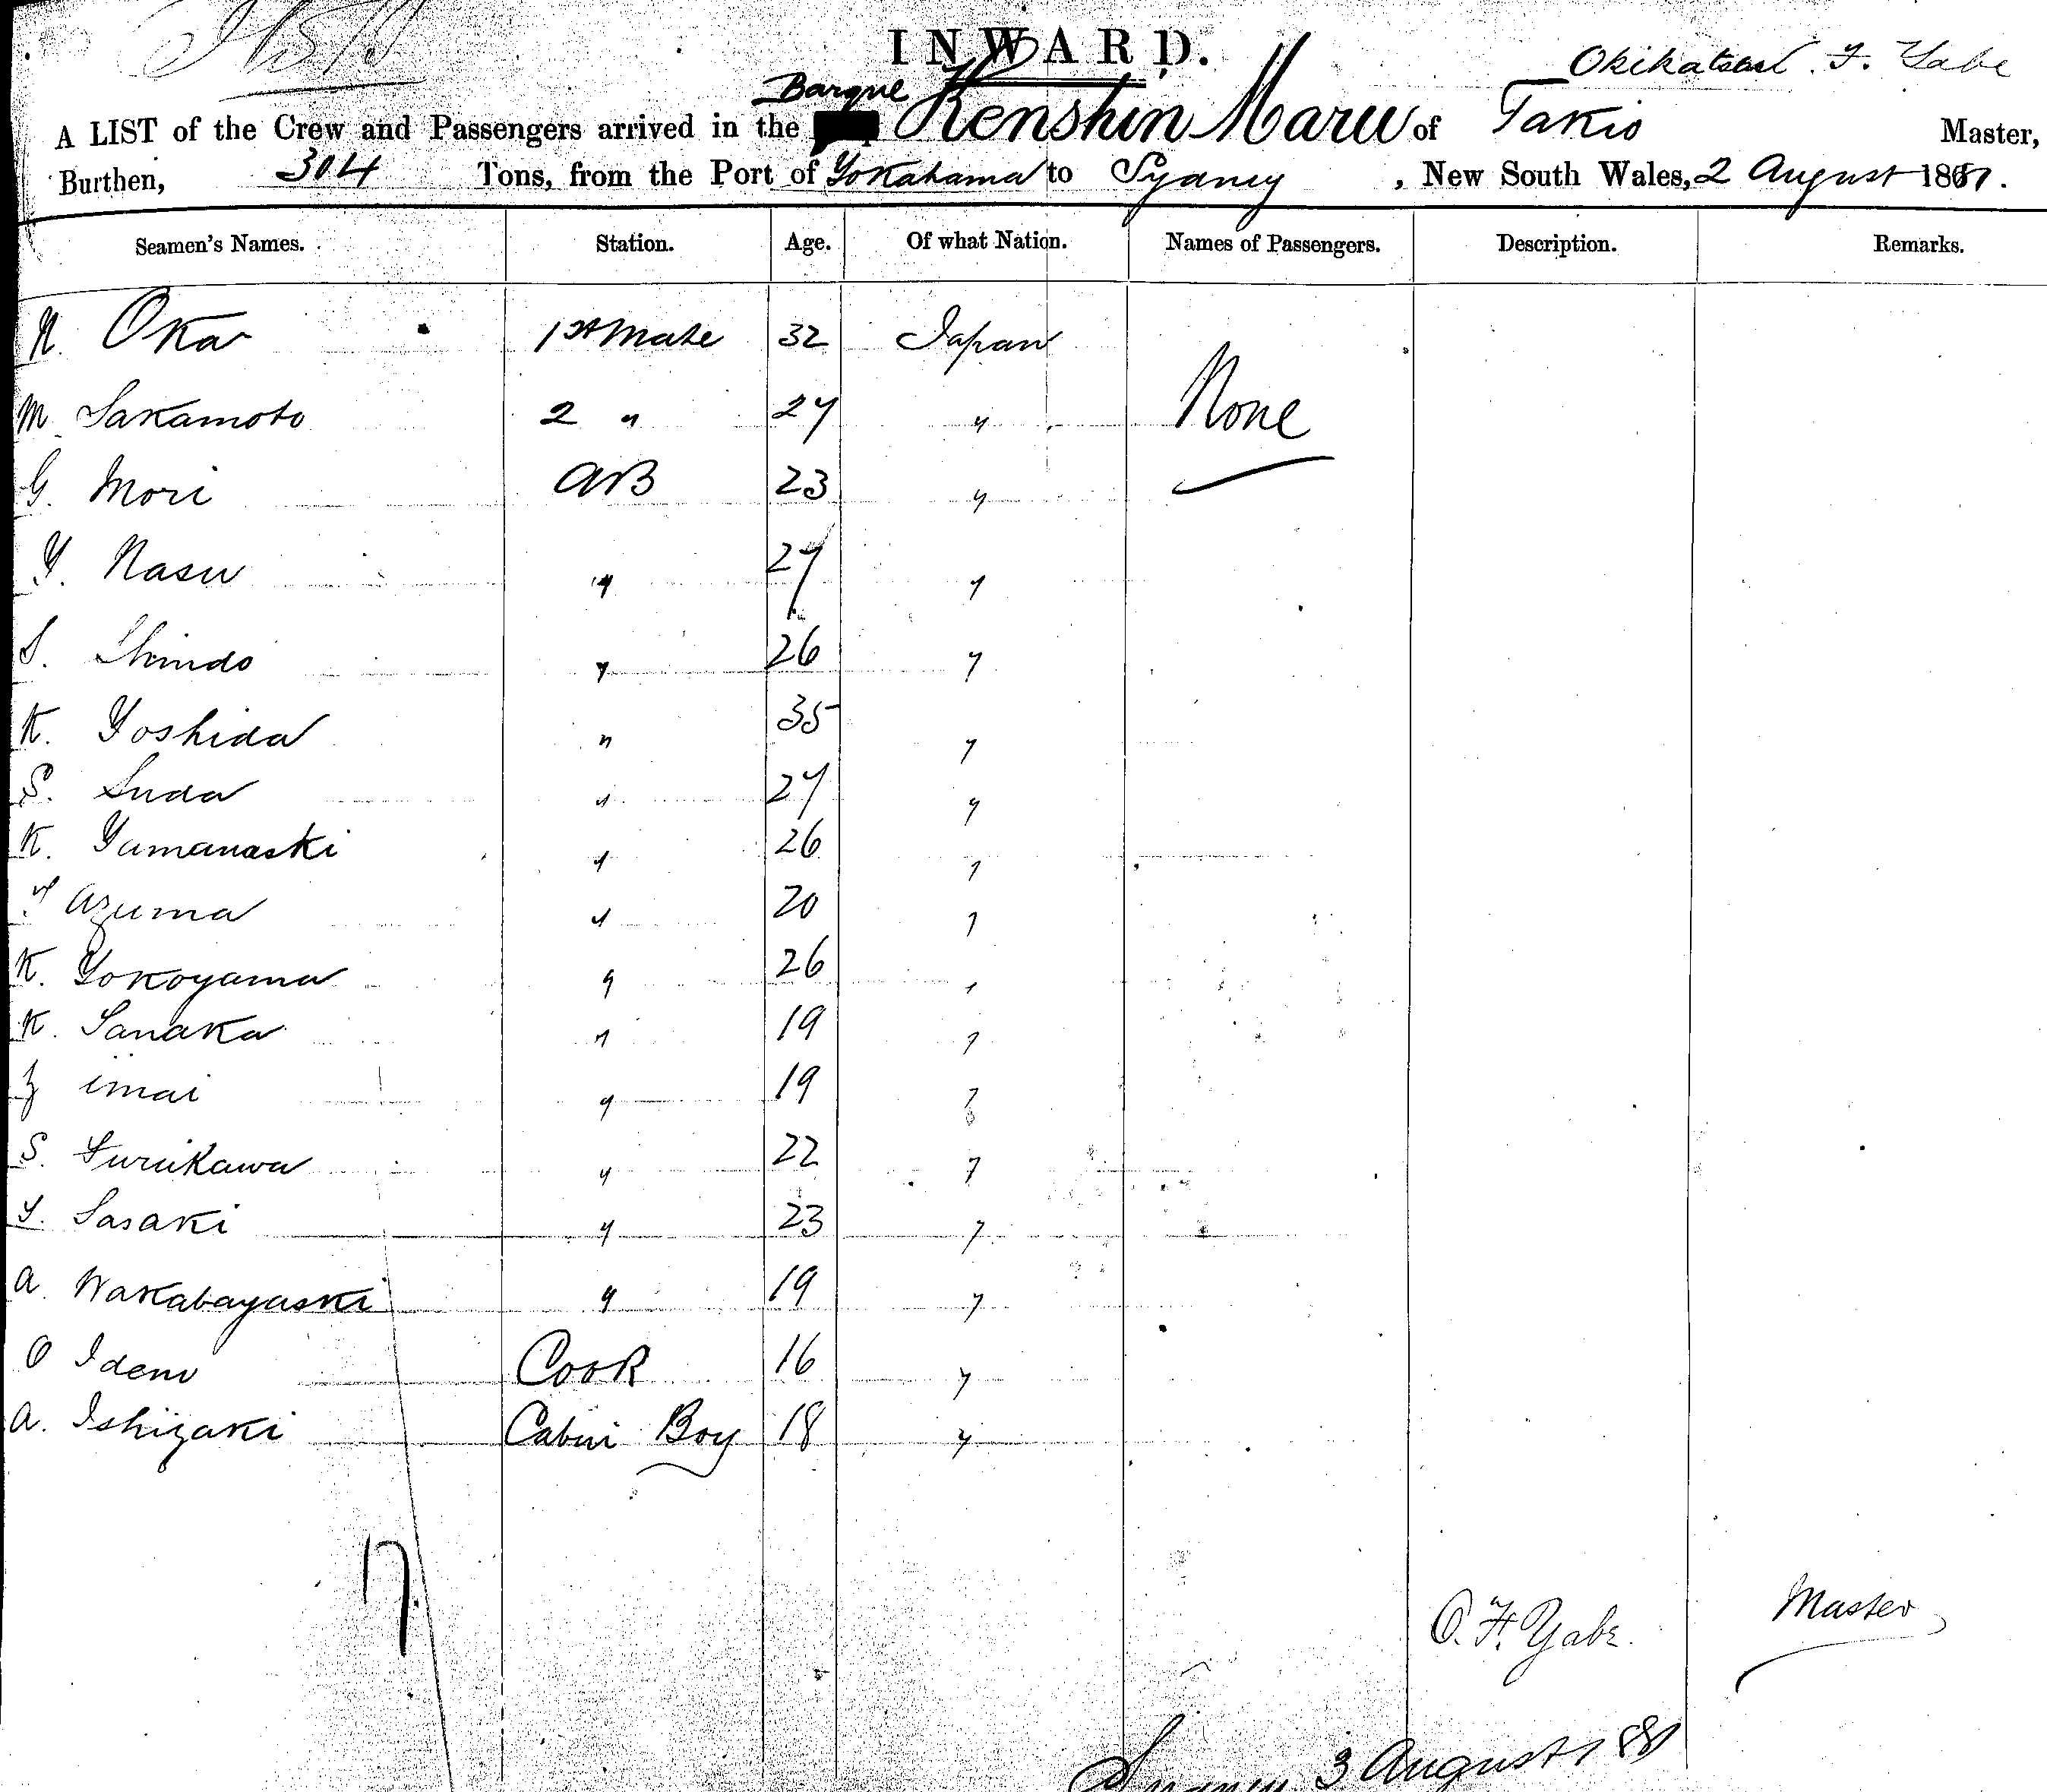 INWARD.
Okikatsu F. Yabe
Barque
A LIST of the Crew and Passengers arrived in the Kenshin Maru of Takio Master,
Burthen, 304 Tons, from the Port of Yokahama to Sydney, New South Wales, 2 August 1881.
Seamen's Names. Station. Age. Of what Nation. Names of Passengers. Description. Remarks.
N. Oka 1st Mate 32 Japan
None
M. Sakamoto 2 " 27 "
G. Mori AB 23 "
Y. Nasu " 27 "
S. Shindo " 26 "
K. Yoshida " 35 "
S. Suda " 27 "
K. Yamanaski " 26 "
Y Azuma " 20 "
K. Yokoyama " 26 "
K. Tanaka " 19 "
Z imai " 19 "
S. Furukawa " 22 "
Y. Sasaki " 23 "
A. Wakabayaski " 19 "
O Idem Cook 16 "
A. Ishizaki Cabin Boy 18 "
17.
O. F. Yabe. Master
Sydney 3 August 1881